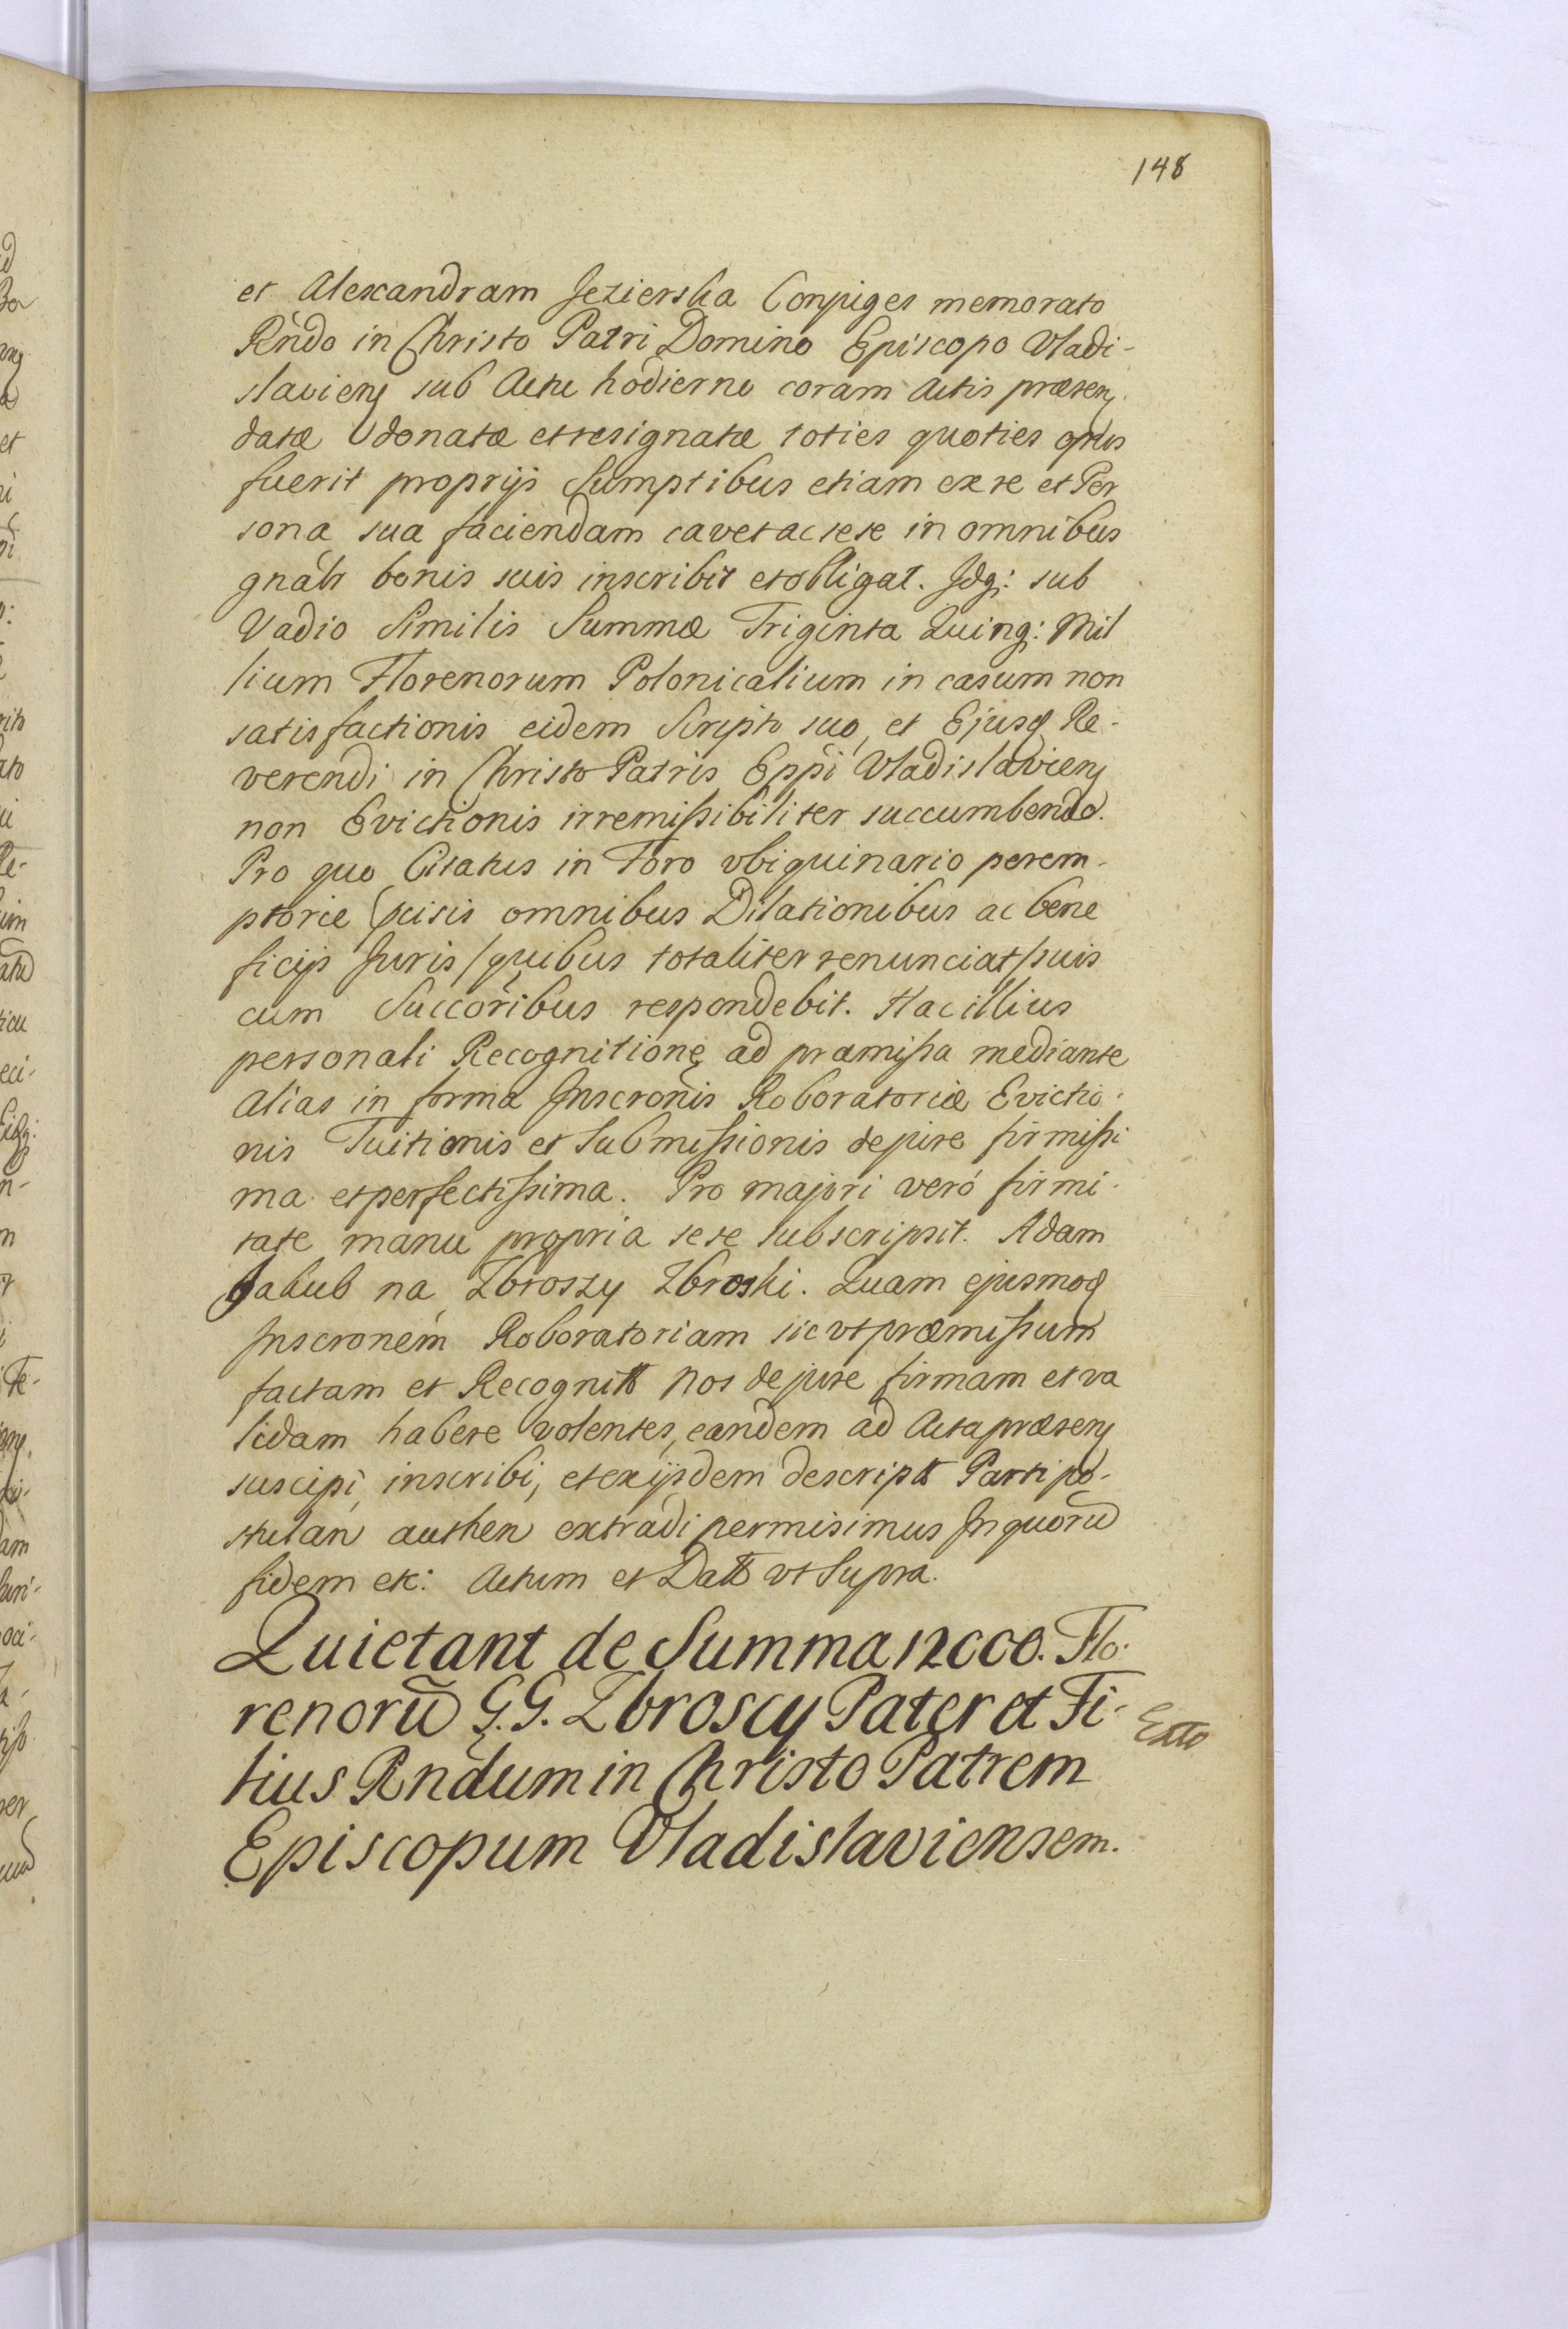 148
et Alexandram Jezierska Conjuges memorato
Rńdo in Christo Patri Domino Episcopo Vladi-
slavieng sub Actu hodierno coram Actis præseng
datæ donatæ et resignatæ toties quoties opus
fuerit proprijs Sumptibus etiam ex re et Per
sona sua faciendam cavet ac sese in omnibus
gnalr bonis suis inscribit et obligat. Idq: sub
Vadio Similis Summæ Triginta Quinq: Mil
lium Florenorum Polonicalium in casum non
satisfactionis eidem Scripto suo, et Ejusq Re-
verendi in Christo Patris Eppi Vladislavieng
non Evictionis irremissibiliter succumbendo.
Pro quo Citatus in Foro vbiquinario perem-
ptorie scisis omnibus Dilationibus ac bene
ficijs Juris /quibus totaliter renunciat/ suis
cum Succoribus respondebit. Hac illius
personali Recognitione ad præmissa mediante
Alias in forma Inscronis Roboratoriæ Evictio-
nis Tuitionis et Submissionis de jure firmissi
ma et perfectissima. Pro majori veró firmi-
tate manu propria sese subscripsit. Adam
Jakub na Zbroszy Zbroski. Quam ejusmoq
Inscronem Roboratoriam sic vt præmissum
factam et Recognitt Nos de jure firmam et va
lidam habere volentes, eandem ad Acta præseng
suscipi, inscribi, et ex ijsdem descriptt Parti po-
stulan authen extradi permisimus In quorũ
fidem etc: Actum et Datt vt Supra.
Quietant de Summa 12000. Flo-
renorũ G.G. Zbroscy Pater et Fi-
lius Rndum in Christo Patrem
Episcopum Vladislaviensem.